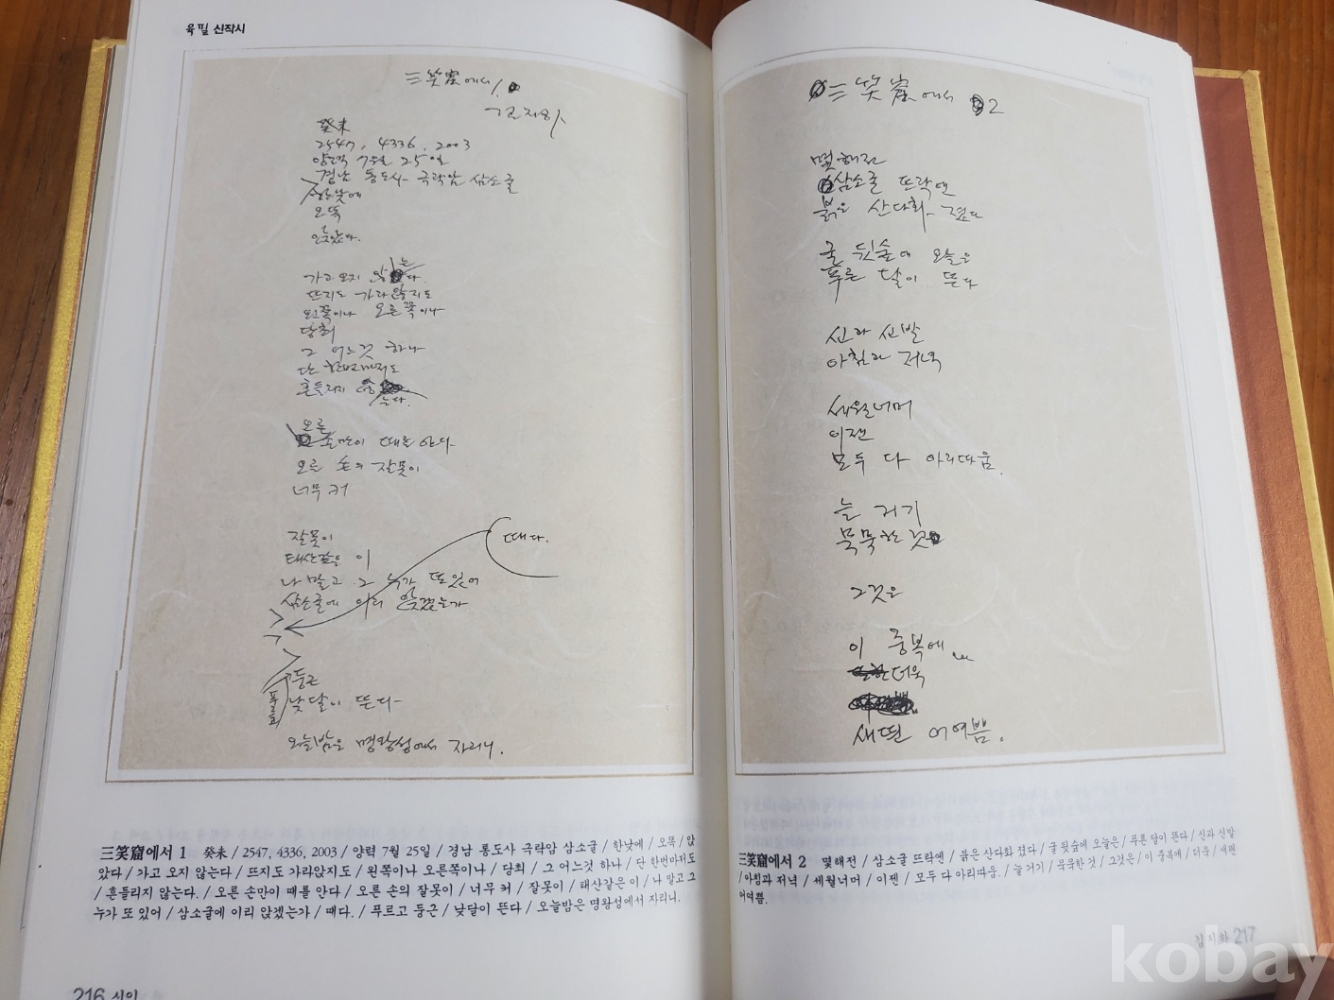 육필 신작시
三笑窟에서 1.
김지하
癸未
2547, 4336, 2003
양력 7월 25일
경남 통도사 극락암 삼소굴
한낮에
오뚝
앉았다.
가고 오지 않는다.
뜨지도 가라앉지도
왼쪽이나 오른쪽이나
당최
그 어느것 하나
단 한번마저도
흔들리지 않
는다.
오른
손만이 때를 안다
오른 손의 잘못이
너무 커
잘못이
때다.
태산같은 이
나 말고 그 누가 또 있어
삼소굴에 이리 앉겠는가
둥근
푸르고
낮달이 뜬다
오늘밤은 명왕성에서 자리니.
三笑窟에서 1 癸未 / 2547, 4336, 2003 / 양력 7월 25일 / 경남 통도사 극락암 삼소굴 / 한낮에 / 오뚝 / 앉
았다 / 가고 오지 않는다 / 뜨지도 가라앉지도 / 왼쪽이나 오른쪽이나 / 당최 / 그 어느것 하나 / 단 한번마저도
/ 흔들리지 않는다. / 오른 손만이 때를 안다 / 오른 손의 잘못이 / 너무 커 / 잘못이 / 태산같은 이 / 나 말고 그
누가 또 있어 / 삼소굴에 이리 앉겠는가 / 때다. / 푸르고 둥근 / 낮달이 뜬다 / 오늘밤은 명왕성에서 자리니.
216 시인
三笑窟에서 2
몇해전
삼소굴 뜨락엔
붉은 산다화 졌다
굴 뒷숲에 오늘은
푸른 달이 뜬다
신과 신발
아침과 저녁
세월너머
이젠
모두 다 아리따움.
늘 거기
묵묵한 것
그것은
이 중복에
더욱
새편 어여쁨.
三笑窟에서 2 몇해전 / 삼소굴 뜨락엔 / 붉은 산다화 졌다 / 굴 뒷숲에 오늘은 / 푸른 달이 뜬다 / 신과 신발
/ 아침과 저녁 / 세월너머 / 이젠 / 모두 다 아리따움. / 늘 거기 / 묵묵한 것 / 그것은 / 이 중복에 / 더욱 / 새편
어여쁨.
김지하 217
kobay